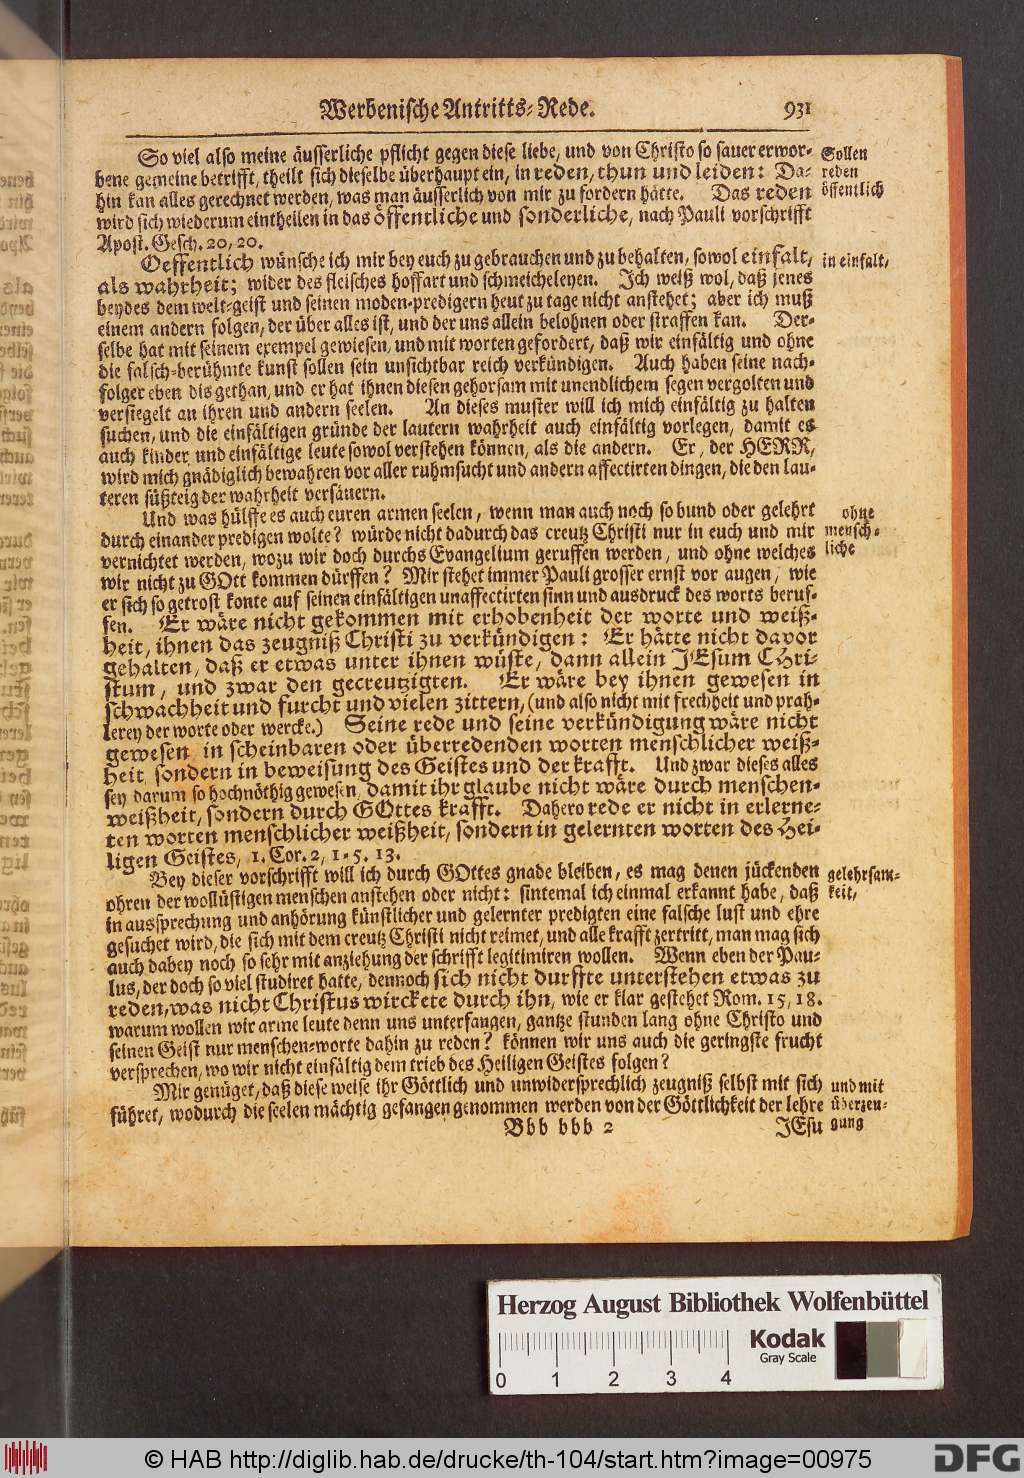 Werbenische Antritts-Rede. 931
So viel also meine äusserliche pflicht gegen diese liebe, und von Christo so sauer erwor-
bene gemeine betrifft, theilt sich dieselbe überhaupt ein, in reden, thun und leiden: Da-
hin kan alles gerechnet werden, was man äusserlich von mir zu fordern hätte. Das reden
wird sich wiederum eintheilen in das öffentliche und sonderliche, nach Pauli vorschrifft
Apost. Gesch. 20, 20.
Sollen
reden
öffentlich
Oeffentlich wünsche ich mir bey euch zu gebrauchen und zu behalten, sowol einfalt,
als wahrheit; wider des fleisches hoffart und schmeicheleyen. Ich weiß wol, daß jenes
beydes dem welt-geist und seinen moden-predigern heut zu tage nicht anstehet; aber ich muß
einem andern folgen, der über alles ist, und der uns allein belohnen oder straffen kan. Der-
selbe hat mit seinem exempel gewiesen, und mit worten gefordert, daß wir einfältig und ohne
die falsch-berühmte kunst sollen sein unsichtbar reich verkündigen. Auch haben seine nach-
folger eben dis gethan, und er hat ihnen diesen gehorsam mit unendlichem segen vergolten und
versiegelt an ihren und andern seelen. An dieses muster will ich mich einfältig zu halten
suchen, und die einfältigen gründe der lautern wahrheit auch einfältig vorlegen, damit es
auch kinder und einfältige leute sowol verstehen können, als die andern. Er, der HERR,
wird mich gnädiglich bewahren vor aller ruhmsucht und andern affectirten dingen, die den lau-
teren süßteig der wahrheit versäuern.
in einfalt,
Und was hülffe es auch euren armen seelen, wenn man auch noch so bund oder gelehrt
durch einander predigen wolte? würde nicht dadurch das creutz Christi nur in euch und mir
vernichtet werden, wozu wir doch durchs Evangelium geruffen werden, und ohne welches
wir nicht zu GOtt kommen dürffen? Mir stehet immer Pauli grosser ernst vor augen, wie
er sich so getrost konte auf seinen einfältigen unaffectirten sinn und ausdruck des worts beruf-
fen. Er wäre nicht gekommen mit erhobenheit der worte und weiß-
heit, ihnen das zeugniß Christi zu verkündigen: Er hätte nicht davor
gehalten, daß er etwas unter ihnen wüste, dann allein JEsum CHri-
stum, und zwar den gecreutzigten. Er wäre bey ihnen gewesen in
schwachheit und furcht und vielen zittern, (und also nicht mit frechheit und prah-
lerey der worte oder wercke.) Seine rede und seine verkündigung wäre nicht
gewesen in scheinbaren oder überredenden worten menschlicher weiß-
heit, sondern in beweisung des Geistes und der krafft. Und zwar dieses alles
sey darum so hochnöthig gewesen, damit ihr glaube nicht wäre durch menschen-
weißheit, sondern durch GOttes krafft. Dahero rede er nicht in erlerne-
ten worten menschlicher weißheit, sondern in gelernten worten des Hei-
ligen Geistes, 1. Cor. 2, 1-5. 13.
ohne
mensch-
liche
Bey dieser vorschrifft will ich durch GOttes gnade bleiben, es mag denen jückenden
ohren der wollüstigen menschen anstehen oder nicht: sintemal ich einmal erkannt habe, daß
in aussprechung und anhörung künstlicher und gelernter predigten eine falsche lust und ehre
gesuchet wird, die sich mit dem creutz Christi nicht reimet, und alle krafft zertritt, man mag sich
auch dabey noch so sehr mit anziehung der schrifft legitimiren wollen. Wenn eben der Pau-
lus, der doch so viel studiret hatte, dennoch sich nicht durffte unterstehen etwas zu
reden, was nicht Christus wirckete durch ihn, wie er klar gestehet Rom. 15, 18.
warum wollen wir arme leute denn uns unterfangen, gantze stunden lang ohne Christo und
seinen Geist nur menschen-worte dahin zu reden? können wir uns auch die geringste frucht
versprechen, wo wir nicht einfältig dem trieb des Heiligen Geistes folgen?
gelehrsam-
keit,
Mir genüget, daß diese weise ihr Göttlich und unwidersprechlich zeugniß selbst mit sich
führet, wodurch die seelen mächtig gefangen genommen werden von der Göttlichkeit der lehre
Bbb bbb 2 JEsu
und mit
überzeu-
gung
Herzog August Bibliothek Wolfenbüttel
0 1 2 3 4
Kodak
Gray Scale
© HAB http://diglib.hab.de/drucke/th-104/start.htm?image=00975
DFG